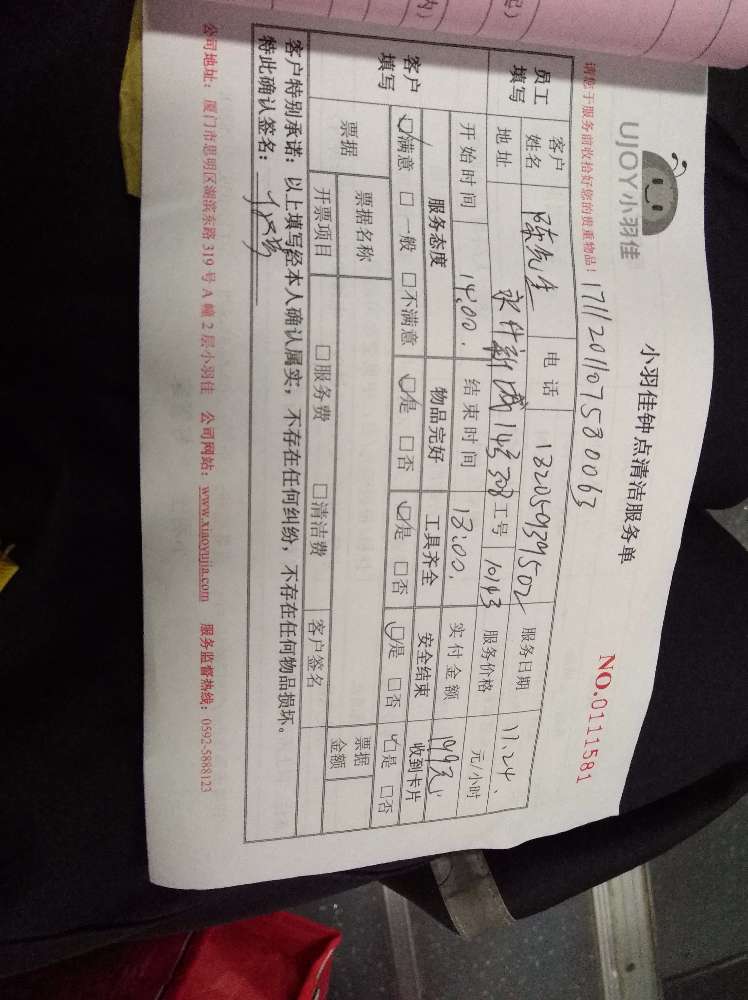 UJOY小羽佳
小羽佳钟点清洁服务单
NO.0111581
请您于服务前收拾好您的贵重物品!
1711201107580063
员工填写
客户姓名 陈先生 电话 13205939502 服务日期 11.24.
地址 新城 143 308 工号 10143 服务价格 元/小时
客户填写
开始时间 14:00. 结束时间 18:00. 实付金额
服务态度 物品完好 工具齐全 安全结束 收到卡片
☑满意 □一般 □不满意 ☑是 □否 ☑是 □否 ☑是 □否 ☑是 □否
票据 票据名称 票据金额
开票项目 □服务费 □清洁费 客户签名
客户特别承诺:以上填写经本人确认属实,不存在任何纠纷,不存在任何物品损坏。
特此确认签名:
公司地址:厦门市思明区湖滨东路319号A幢2层小羽佳 公司网站:www.xiaoyujia.com 服务监督热线:0592-5888123